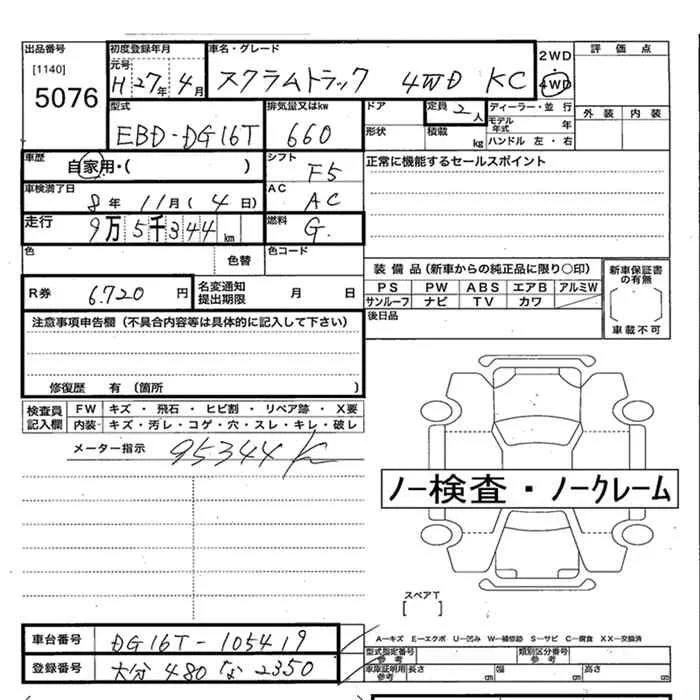 出品番号 初度登録年月 車名・グレード 2WD 評価点
[1140] 元号 H 27年 4月 スクラムトラック 4WD KC ・ 4WD
5076
型式 排気量又はkw ドア 定員 2人 ディーラー・並行 外装 内装
EBD-DG16T 660 形状 積載 kg モデル年式 年
ハンドル 左・右
車歴 自家用・( ) シフト F5 正常に機能するセールスポイント
車検満了日 8年 11月 ( 4日) AC AC
走行 9万5千344km 燃料 G.
色 色替 色コード
装備品(新車からの純正品に限り○印) 新車保証書の有無
R券 6.720円 名変通知提出期限 月 日 PS PW ABS エアB アルミW
サンルーフ ナビ TV カワ 車載不可
注意事項申告欄(不具合内容等は具体的に記入して下さい) 後日品
修復歴 有(箇所 )
検査員記入欄 FW キズ・飛石・ヒビ割・リペア跡・X要
内装 キズ・汚レ・コゲ・穴・スレ・キレ・破レ
メーター指示 95344K
ノー検査・ノークレーム
スペアT
[ ]
車台番号 DG16T-105419 A-キズ E-エクボ U-凹み W-補修跡 S-サビ C-腐食 XX-交換済
型式指定番号 参考 類別区分番号 参考
登録番号 大分 480 な 2350 車庫証明用 参考 長さ cm 幅 cm 高さ cm